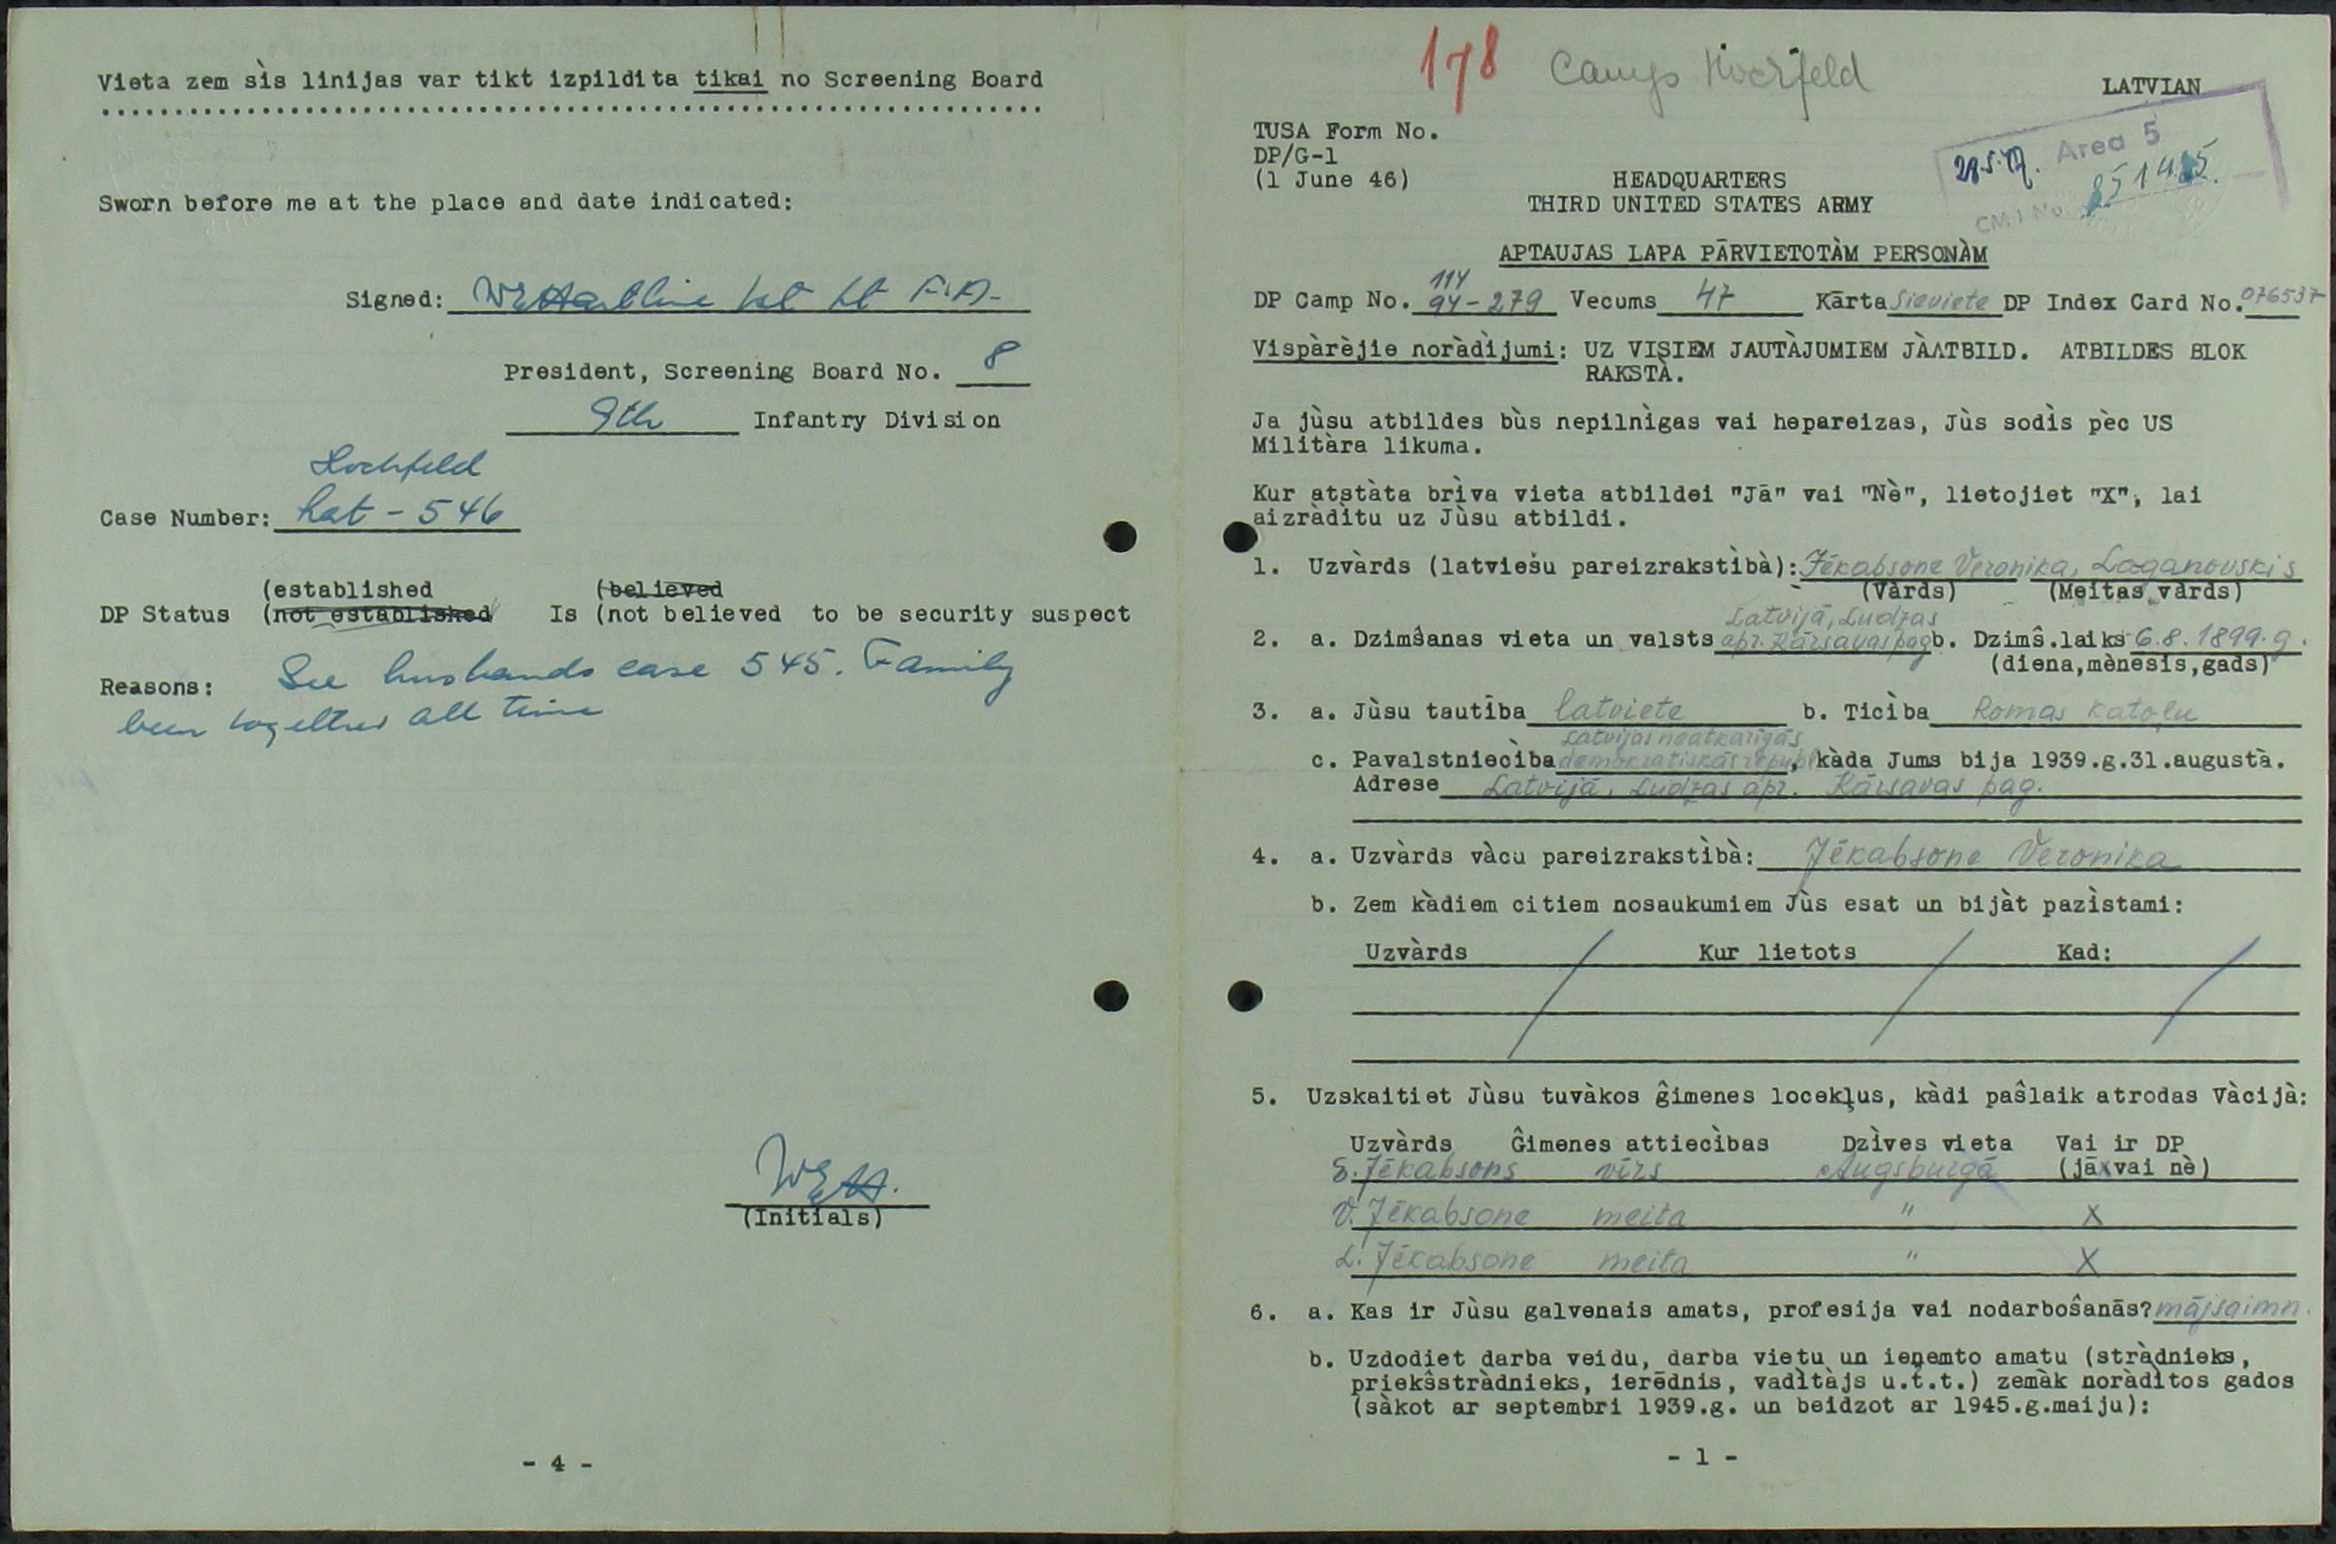 Vieta zem sìs linijas var tikt izpildita tikai no Screening Board
Sworn before me at the place and date indicated:
Signed: WEHartline 1st Lt F.A.
President, Screening Board No. 8
9th Infantry Division
Hochfeld
Case Number: Lat - 546
(established (believed
DP Status (not established Is (not believed to be security suspect
Reasons: See husbands case 545. Family
been together all time
WEH.
(Initials)
- 4 -
178 Camp Hochfeld
LATVIAN
TUSA Form No.
DP/G-1
(1 June 46)
28.5.47. Area 5
CM/1 No 851485.
HEADQUARTERS
THIRD UNITED STATES ARMY
APTAUJAS LAPA PĀRVIETOTÀM PERSONÀM
114
DP Camp No. 94-279 Vecums 47 Kārta Sieviete DP Index Card No. 076537
Vispàrèjie noràdijumi: UZ VISIEM JAUTÀJUMIEM JÀATBILD. ATBILDES BLOK
RAKSTÀ.
Ja jùsu atbildes bùs nepilnìgas vai hepareizas, Jùs sodìs pèc US
Militàra likuma.
Kur atstàta brìva vieta atbildei "Jā" vai "Nè", lietojiet "X", lai
aizràditu uz Jùsu atbildi.
1. Uzvàrds (latviešu pareizrakstìbà): Jēkabsone Veronika, Loganovskis
(Vàrds) (Meitas vàrds)
Latvijā, Ludzas
2. a. Dzimŝanas vieta un valsts apr. Kārsavas pag b. Dzimŝ.laiks 6.8.1899.g.
(diena,mènesis,gads)
3. a. Jùsu tautība latviete b. Ticìba Romas katoļu
Latvijas neatkarīgās
c. Pavalstniecìba demokratiskās republ, kàda Jums bija 1939.g.31.augustà.
Adrese Latvijā, Ludzas apr. Kārsavas pag.
4. a. Uzvàrds vàcu pareizrakstìbà: Jēkabsone Veronika
b. Zem kàdiem citiem nosaukumiem Jùs esat un bijàt pazìstami:
Uzvàrds Kur lietots Kad:
5. Uzskaitiet Jùsu tuvàkos ĝimenes locekļus, kàdi paŝlaik atrodas Vàcijà:
Uzvàrds Ĝimenes attiecìbas Dzìves vieta Vai ir DP
S. Jēkabsons vīrs Augsburgā (jā x vai nè)
V. Jēkabsone meita " X
L. Jēkabsone meita " X
6. a. Kas ir Jùsu galvenais amats, profesija vai nodarboŝanās? mājsaimn.
b. Uzdodiet darba veidu, darba vietu un ieņemto amatu (stràdnieks,
priekŝstràdnieks, ierēdnis, vadìtàjs u.t.t.) zemàk noràdìtos gados
(sàkot ar septembri 1939.g. un beidzot ar 1945.g.maiju):
- 1 -